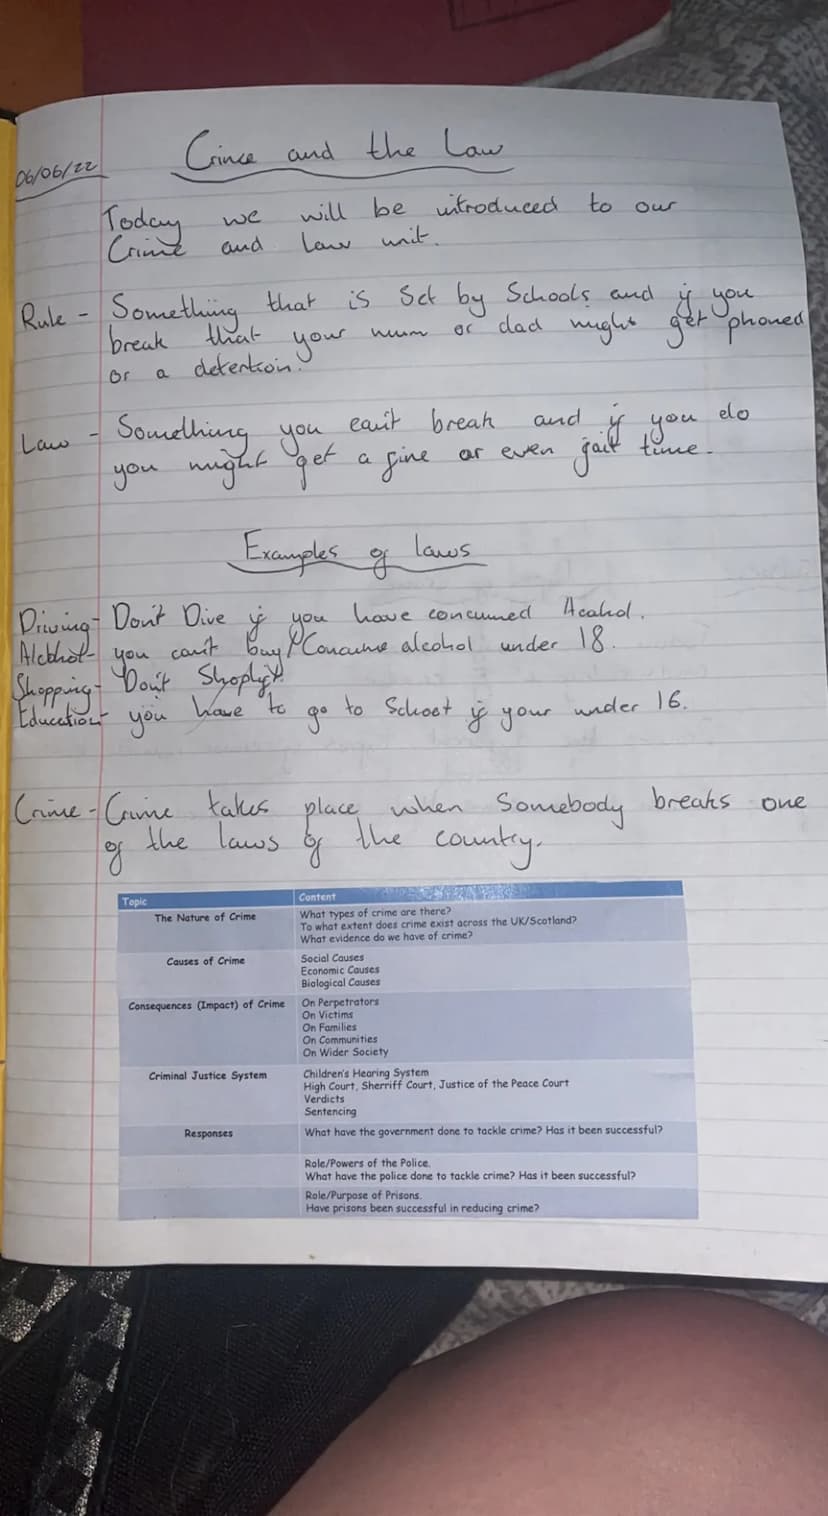 06/06/22
Crime and the Law
Today we will be introduced to our
Crime and Law unit.
Rule - Something that is Set by Schools and if you
break that your mum or dad might get phoned
or a detention.
Law - Something you can't break and if you do
you might get a fine or even jail time.
Examples of laws
Driving - Don't Dive if you have concumed Acahol.
Alcohol - you can't buy/Concume alcohol under 18.
Shopping - Don't Shoplift.
Education - you have to go to School if your under 16.
Crime - Crime takes place when Somebody breaks one
of the laws of the country.
Topic Content
The Nature of Crime What types of crime are there?
To what extent does crime exist across the UK/Scotland?
What evidence do we have of crime?
Causes of Crime Social Causes
Economic Causes
Biological Causes
Consequences (Impact) of Crime On Perpetrators
On Victims
On Families
On Communities
On Wider Society
Criminal Justice System Children's Hearing System
High Court, Sherriff Court, Justice of the Peace Court
Verdicts
Sentencing
Responses What have the government done to tackle crime? Has it been successful?
Role/Powers of the Police.
What have the police done to tackle crime? Has it been successful?
Role/Purpose of Prisons.
Have prisons been successful in reducing crime?